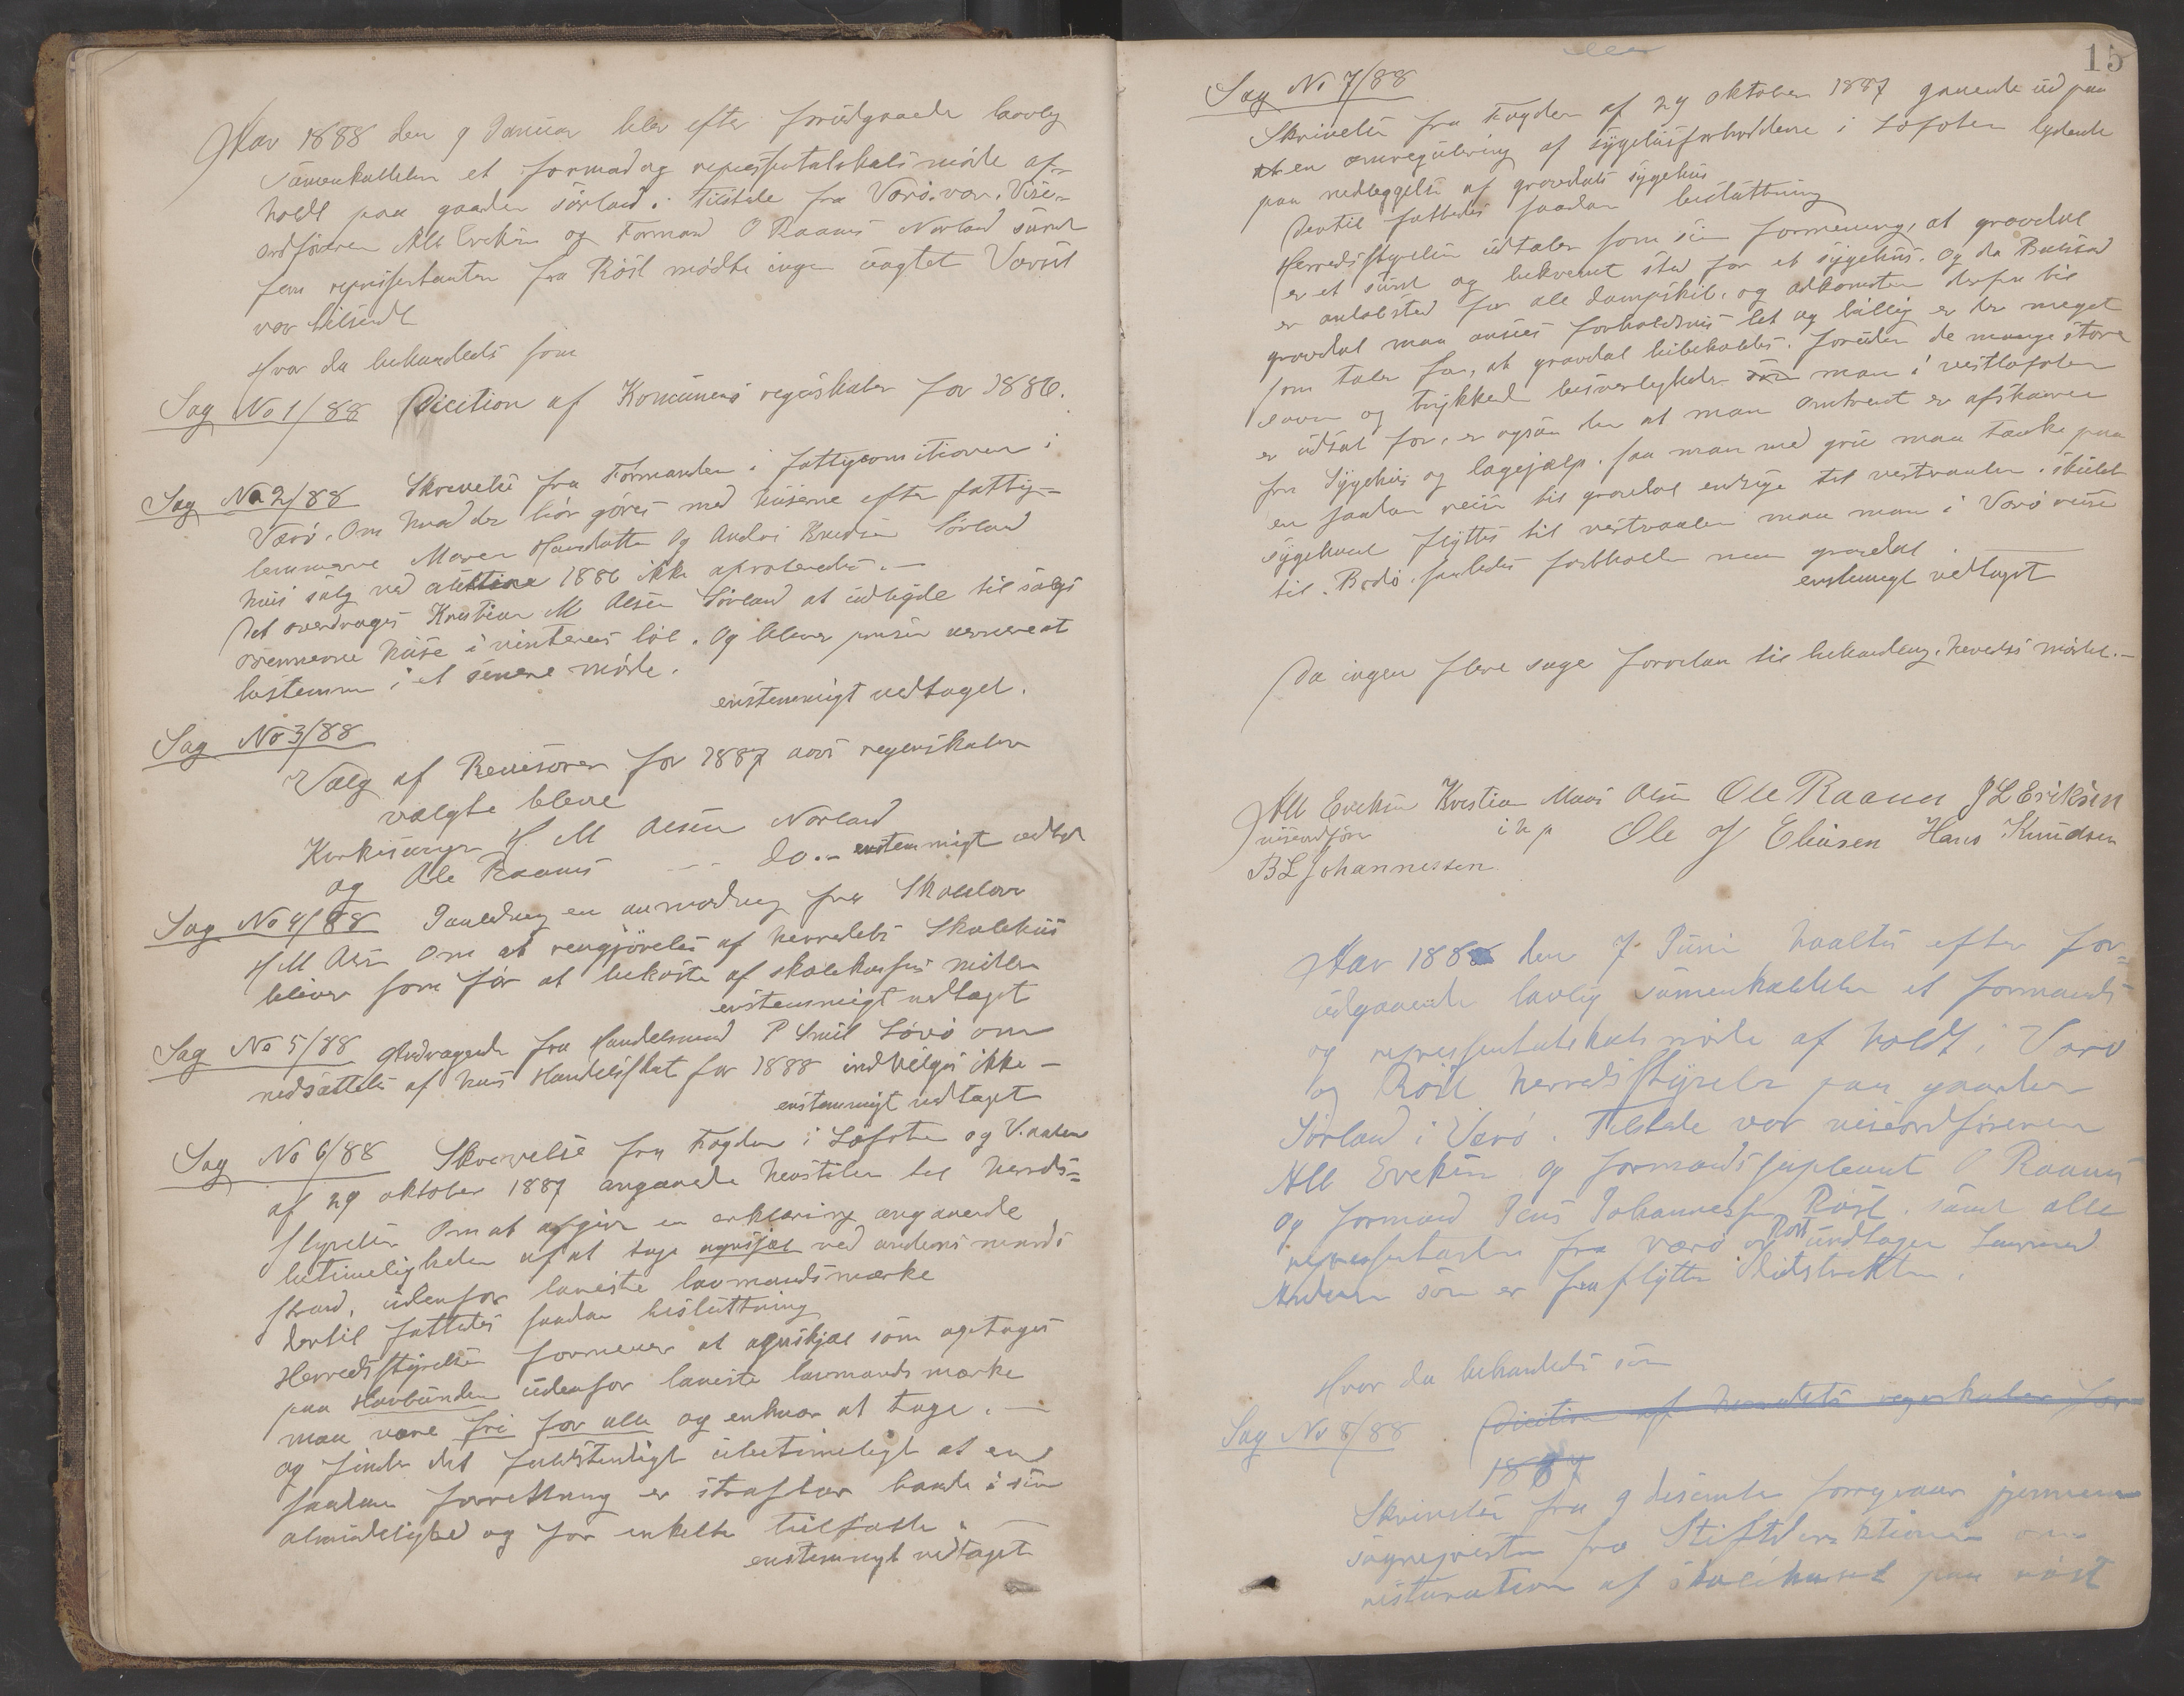 Aar 1888 den 9 Januar blev efter forudgaaende lavlig
samenkaldelse et formand og repræsentatskabsmøde af-
holdt paa gaarden Sørland. Tilstede fra Værø. var. Vise-
ordføreren Alb Ereksen og Formand O Raanes Norland samt
fem repræsentanter fra Røst mødte ingen uagtet Varsel
var tilsendt
Hvor da behandledes som
Sag No 1/88 Dicition af Komunens regnskaber for 1886.
Sag No 2/88 Skrivelse fra Formanden i fattigcomitionen i
Værø. Om hvad der bør gøres med husene efter fattig-
lemmerne Maren Hansdatter Og Andr. Knudsen Sørland
hvis salg ved auktion 1886 ikke aproberedes. —
Det overdrages Kristian M Olsen Sørland at udbyde til salgs
ovennevnte huse i vinterens løb. Og bliver prisen nermere at
bestemme i et senere møde.
enstemmigt vedtaget.
Sag No 3/88
Valg af Revisorer for 1887 aars regnskaber
valgte bleve
Kirkesanger H. M Olsen Norland
og Ole Raanes — do. — enstemmigt vedtat
Sag No 4/88 I anledning en anmodning fra Skolelærer
H M Olsen Om at rengjørelse af herredets Skolehus
bliver som før at bekoste af skolekassens midler
enstemmigt vedtaget
Sag No 5/88 Andragende fra Handelsmand P Smit Sørø om
nedsættelse af hans Handelsskat for 1888 indvilges ikke —
enstemmigt vedtaget
Sag No 6/88 Skrivelse fra Fogden i Lofoten og V.aalen
af 29 oktober 1887 angaaende henstilen til herreds-
styrelsen Om at afgive en erklæring angaaende
betimeligheden af at tage agnskjæl ved andens mands
strand, udenfor laveste lavmandsmærke
dertil fattedes saadan beslutning
Herredsstyrelsen formener at agnskjæl som optages
paa Havbunden udenfor laveste lavmands mærke
maa være fri for alle og enhver at tage. —
og finder det fuldstendigt ubetimeligt at en
saadan forretning er strafbar baade i sin
almindelighed og for enkelte tilfælde. —
enstemmigt vedtaget
15
Sag No 7/88
Skrivelse fra Fogden af 29 oktober 1887 gaaende ud paa
en omregulering af sygehusforholdene i Lofoten lydende
paa nedleggelse af gravdals sygehus
Dertil fattedes saadan beslutning
Herredsstyrelsen udtaler som sin formening, at gravdal
er et sundt og bekvemt sted for et sygehus. Og da Buksnes
er anløbsted for alle dampskib. og adkomsten derfra til
gravdal maa ansees forholdsvis let og billig er der meget
som taler for, at gravdal bibeholdes. foruden de mange store
savn og trykkende besværligheder som man i vestlofoten
er udsat for, er ogsaa den at man omtrent er afskaaren
fra Sygehus og lægejælp. saa man med gru maa tænke paa
en saadan reise til gravdal endsige til vestvaalen. skulde
sygehuset flyttes til vestvaalen maa man i Værø reise
til. Bodø. saaledes forbeholder man gravdal. —
enstemmigt vedtaget
Da ingen flere sager forelaa til behandling. hevedes mødet. —
Alb Ereksen Kristian Maas Olsen Ole Raanes J L Eriksen
viseordfører i h p Ole J Eliasen Hans Knudsen
B L Johannessen
Aar 1888 den 7 Juni haaltes efter for-
udgaaende lavlig samenkaldelse et formands
og repræsentatskabsmøde af holdt i Værø
og Røst herredsstyrelse paa gaarden
Sørland i Værø. Tilstede var viseordføreren
Alb Ereksen og formandssupleant O Raanes
og formand Jens Johannessen Røst. samt alle
repræsentanter fra værø og Røst undtagen
Andersen som er fraflyttet Distriktet.
Hvor da behandledes som
Sag No 8/88. Dicition af herredets regnskaber for
1887
Skrivelse fra 9 desember forrige aar jennem
sognepresten fra Stiftsdirektionen om
restauration af skolehuset paa røst